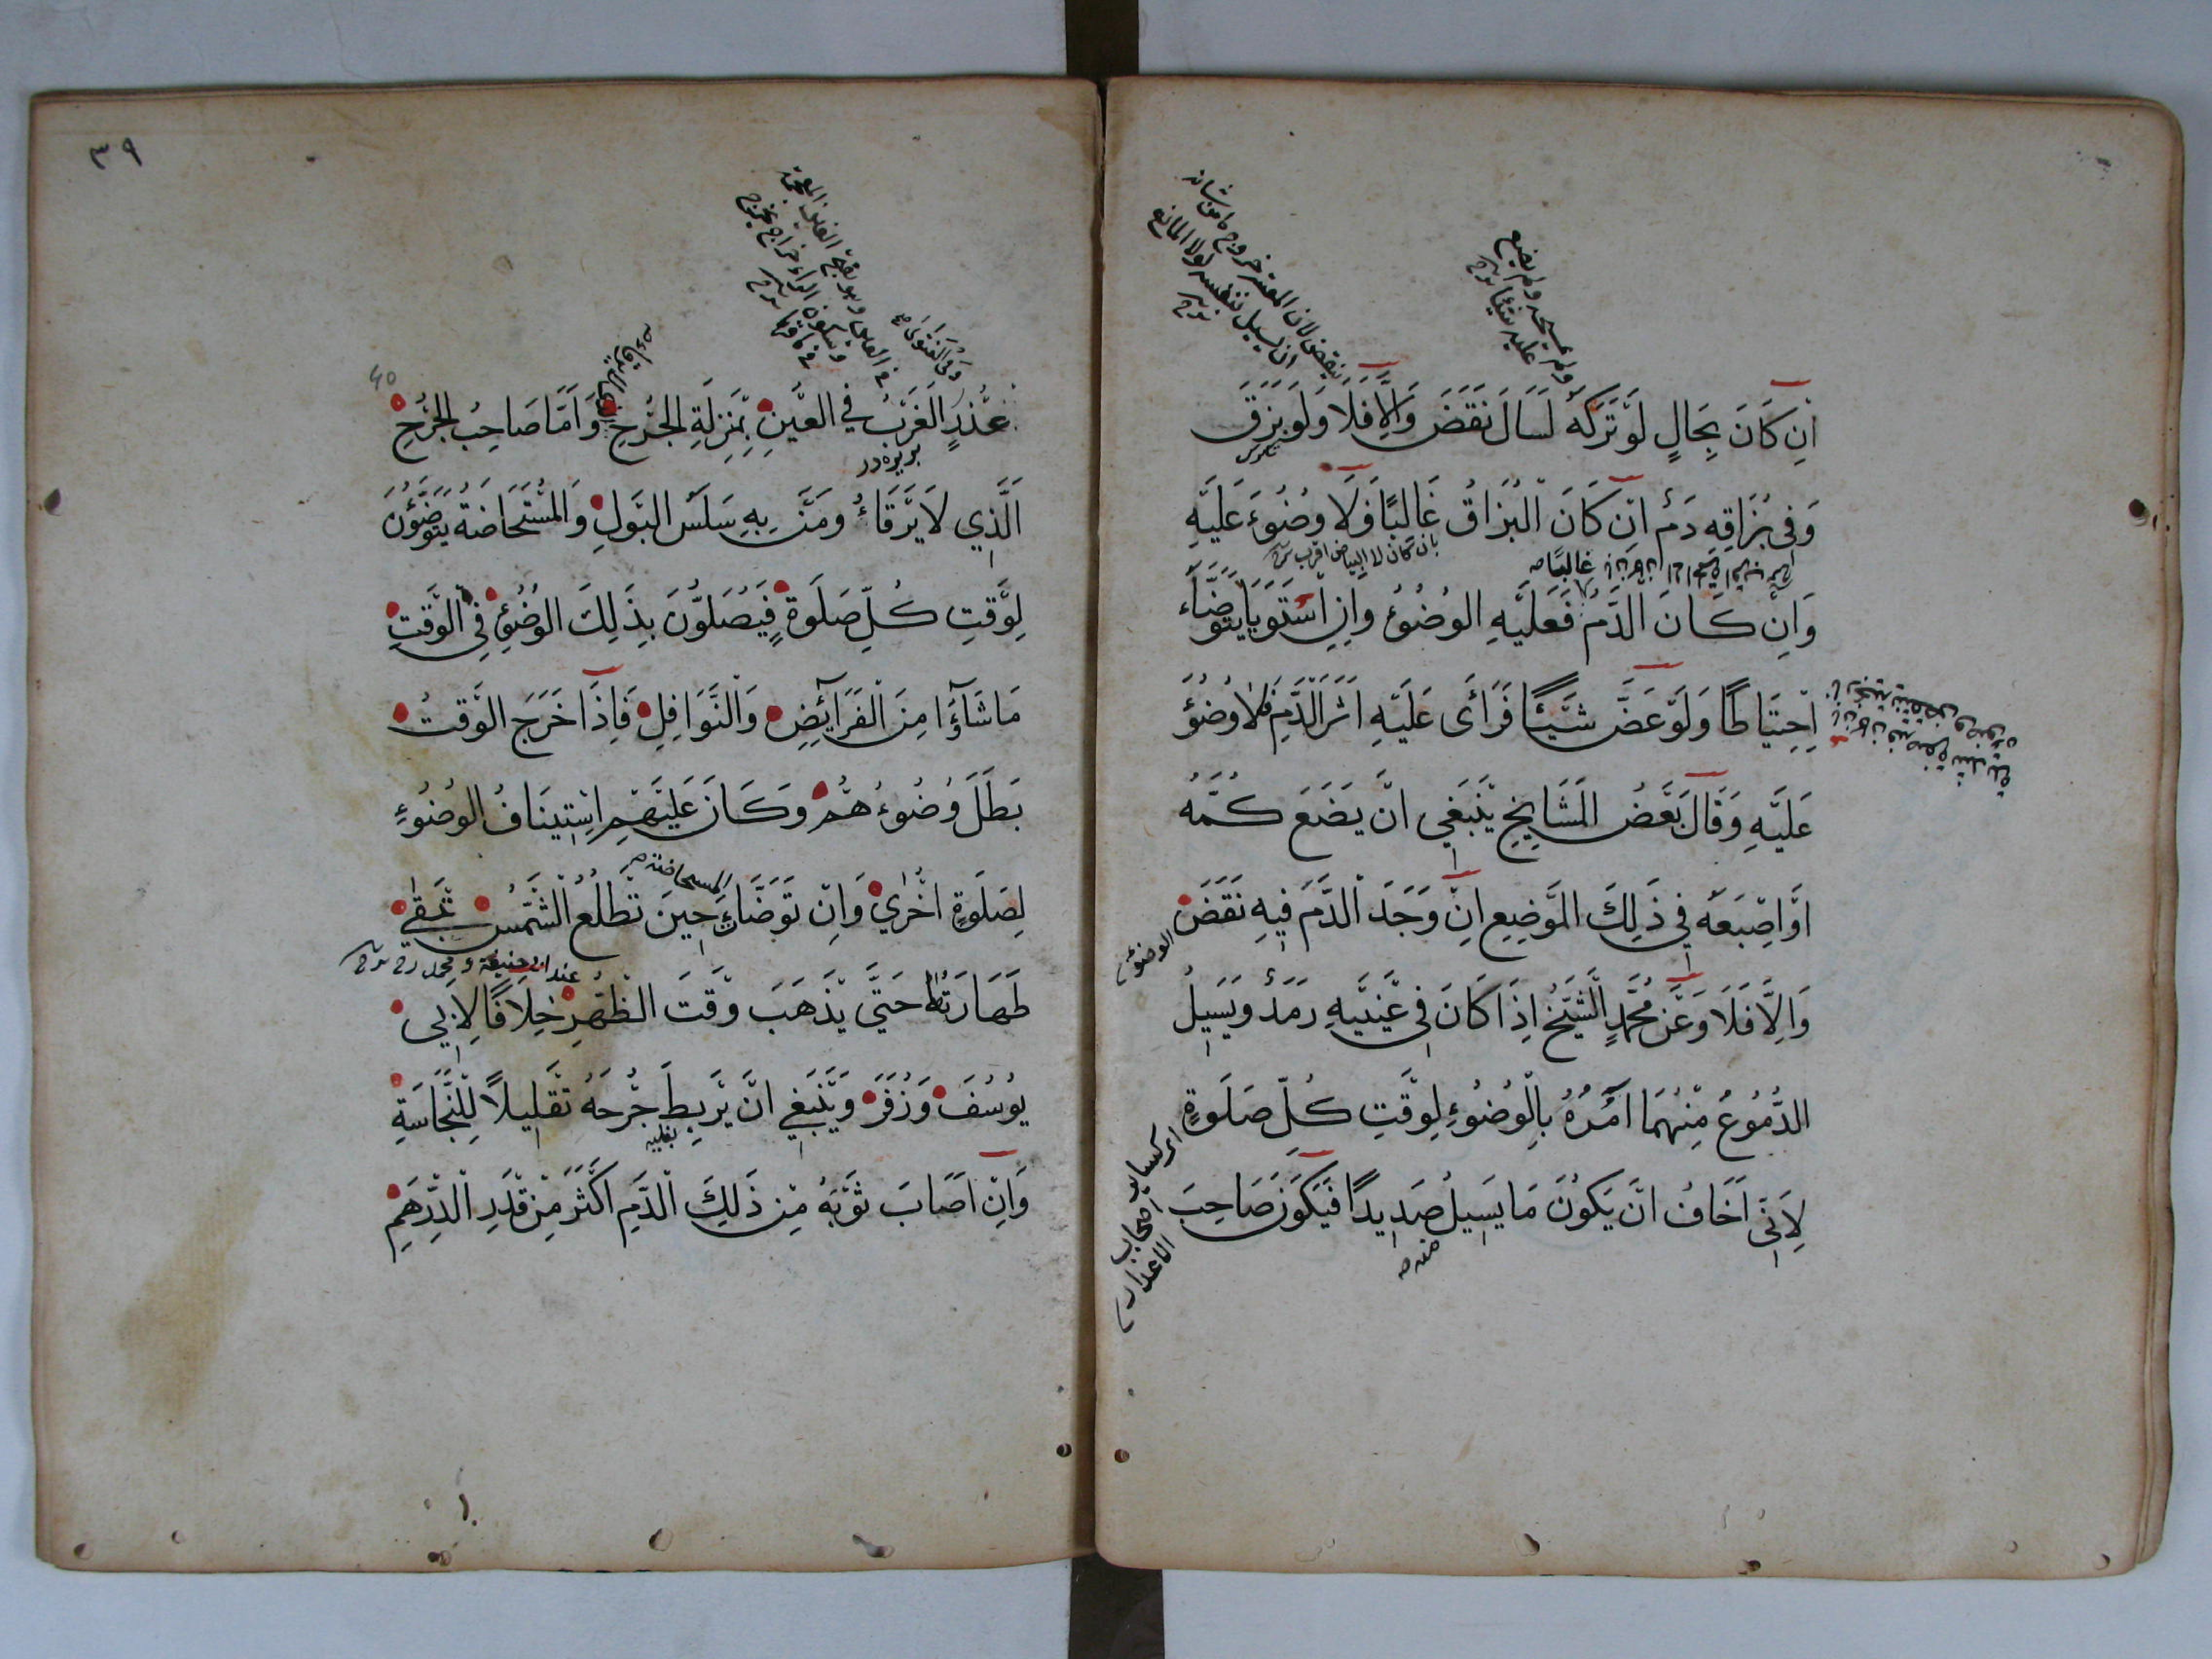 اِنْ كَانَ بِحَالٍ لَوْ تَرَكَهُ لَسَالَ نَقَضَ وَاِلَّا فَلَا وَلَوْ بَزَقَ
وَفِي بُزَاقِهِ دَمٌ اِنْ كَانَ الْبُزَاقُ غَالِبًا فَلَا وُضُوءَ عَلَيْهِ
وَاِنْ كَانَ الدَّمُ فَعَلَيْهِ الوُضُؤُ وَاِنِ اسْتَوَيَا يَتَوَضَّاءُ
اِحْتِيَاطًا وَلَوْ عَضَّ شَيْئًا فَرَأَى عَلَيْهِ اَثَرَ الدَّمِ فَلَا وُضُؤَ
عَلَيْهِ وَقَالَ بَعْضُ المَشَايِخِ يَنْبَغِي اَنْ يَضَعَ كُمَّهُ
اَوْ اِصْبَعَهُ فِي ذَلِكَ المَوْضِعِ اِنْ وَجَدَ الدَّمَ فِيهِ نَقَضَ
وَاِلَّا فَلَا وَعَنْ مُحَمَّدٍ الشَّيْخُ اِذَا كَانَ فِي عَيْنَيْهِ رَمَدٌ وَيَسِيلُ
الدُّمُوعُ مِنْهُمَا آمُرُهُ بِالْوُضُوءِ لِوَقْتِ كُلِّ صَلَوةٍ
لِاَنِّي اَخَافُ اَنْ يَكُونَ مَا يَسِيلُ صَدِيدًا فَيَكُونَ صَاحِبَ
ولم يمسحه ولم يضع
عليه شيئا
ان يسيل بنفسه لولا المانع
غالبًا
الوضوء
منه
اصحاب
الاعذار
٣٩
40
عُذْرٍ الغَرْبُ فِي العَيْنِ بِمَنْزِلَةِ الجُرْحِ وَاَمَّا صَاحِبُ الجُرْحِ
اَلَّذِي لَا يَرْقَاءُ وَمَنْ بِهِ سَلَسُ البَوْلِ وَالمُسْتَحَاضَةُ يَتَوَضَّؤُنَ
لِوَقْتِ كُلِّ صَلَوةٍ فَيُصَلُّونَ بِذَلِكَ الوُضُؤِ فِي الْوَقْتِ
مَا شَآؤُا مِنَ الْفَرَائِضِ وَالنَّوَافِلِ فَاِذَا خَرَجَ الوَقْتُ
بَطَلَ وُضُوءُهُمْ وَكَانَ عَلَيْهِمْ اِسْتِينَافُ الوُضُوءِ
لِصَلَوةٍ اُخْرَي وَاِنْ تَوَضَّاَتْ حِينَ تَطْلُعُ الشَّمْسُ تَبْقَي
طَهَارَتُهَا حَتَّي يَذْهَبَ وَقْتَ الظُّهْرِ خِلَافًا لِاَبِي
يُوسُفَ وَزُفَرَ وَيَنْبَغِي اَنْ يَرْبِطَ جُرْحَهُ تَقْلِيلًا لِلنَّجَاسَةِ
وَاِنْ اَصَابَ ثَوْبَهُ مِنْ ذَلِكَ الْدَّمِ اَكْثَرَ مِنْ قَدْرِ الْدِّرْهَمِ
المستحاضة
عند ابي حنيفة و محمد